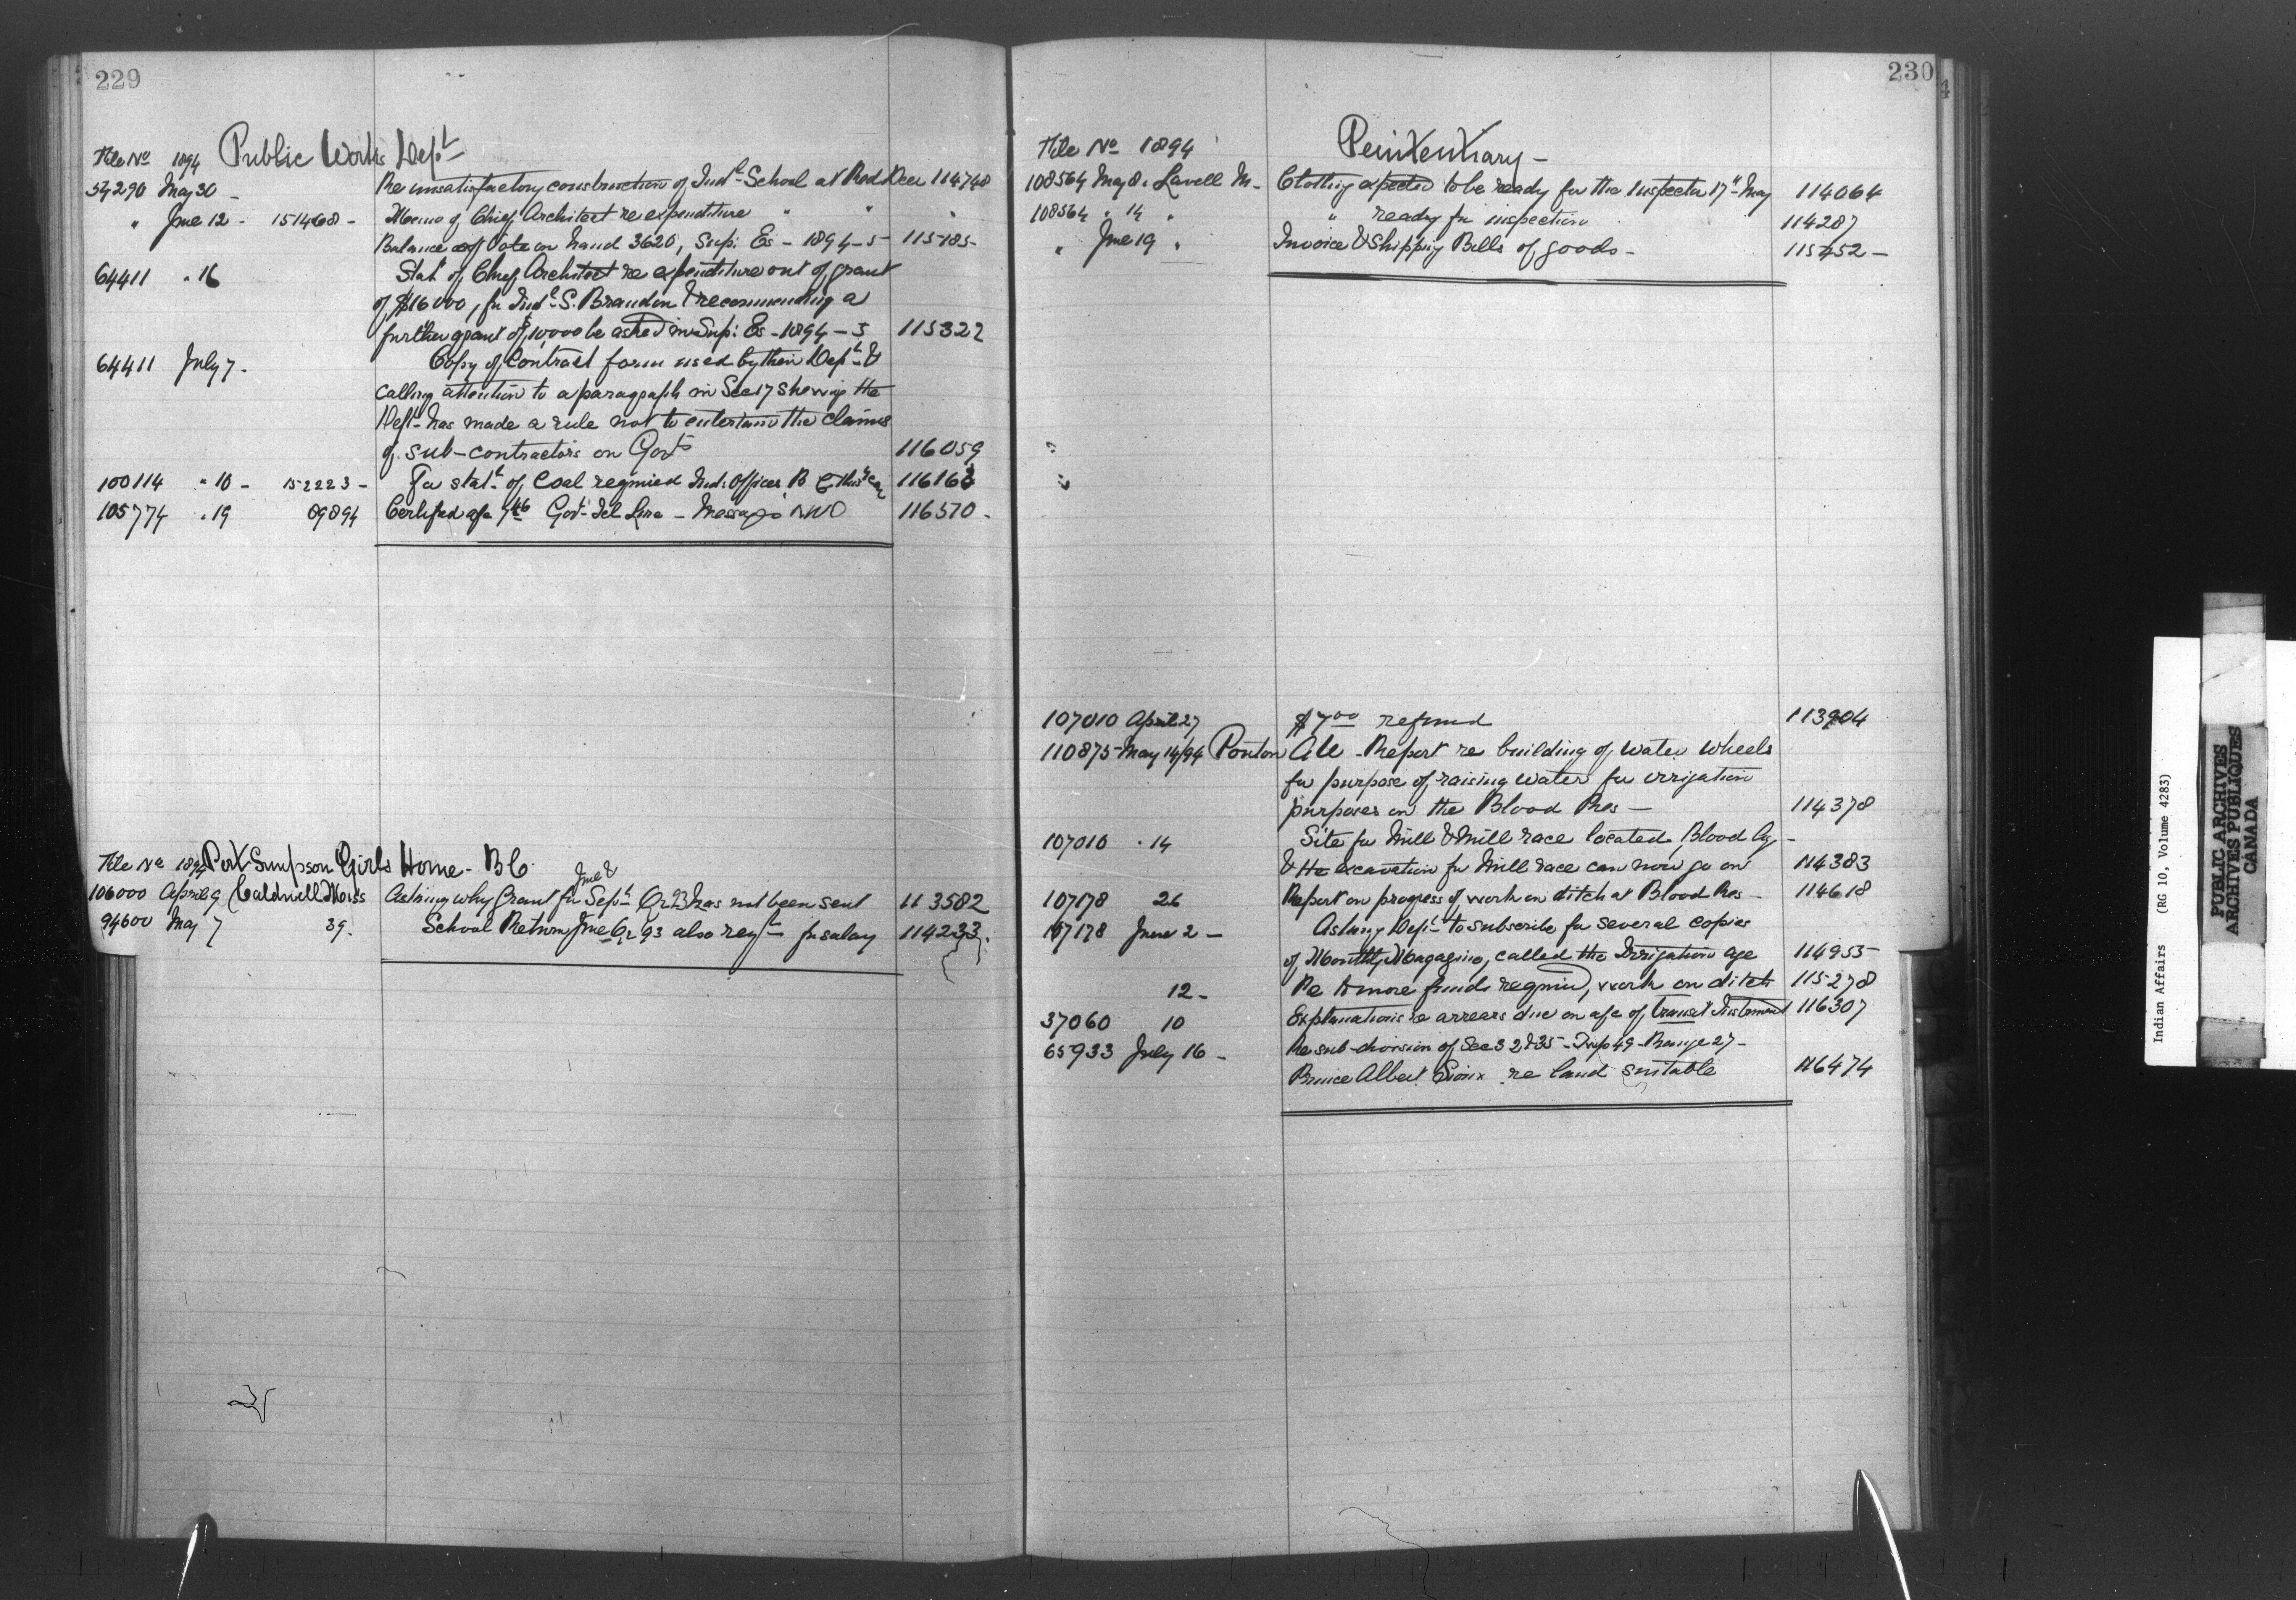 229
File No 1894 Public Works Dept
54290 May 30 - Re unsatisfactory construction of Indl School at Red Deer 114748
" June 12 - 151468 - Memo of Chief Architect re expenditure " " "
Balance of Vote on hand 3620, Sup: Es - 1894-5 - 115185-
64411 " 16 Stat of Chief Architect re expenditure out of grant
of $16000, for Indl S. Brandon & recommending a
further grant of $10,000 be asked in Sup: Es - 1894-5 115322
64411 July 7. Copy of Contract form used by their Dept &
calling attention to a paragraph in Sec 17 shewing the
Dept has made a rule not to entertain the claims
of sub-contractors on Govt 116059
100114 " 10 - 152223 - For statt of Coal required Ind: Offices B C this year 116163
105774 " 19 09894 Certified a/c Govt Tel Line - Messages NWO 116570 -
File No 1894 Port Simpson Girls Home - B C.
June &
106000 April 9 Caldwell Miss Asking why Grant for Sept Qr 93 has not been sent 113582
94600 May 7 39. School Return June Qr 93 also reqt for salary 114233.
230
File No 1894 Penitentiary -
108564 May 8. Lavell M - Clothing expected to be ready for the Inspector 17th May 114064
108564 " 14 " " ready for inspection 114287
" June 19 " Invoice & Shipping Bills of goods - 115452 -
107010 April 27 $7.00 refund 113904
110875 - May 14/94 Ponton A W - Report re building of water wheels
for purpose of raising water for irrigation
purposes on the Blood Res - 114378
107010 " 14 Site for Mill & Mill race located, Blood Ay -
& the excavation for Mill race can now go on 114383
107178 26 Report on progress of work on ditch at Blood Res - 114618
107178 June 2 - Asking Dept to subscribe for several copies
of Monthly Magazine, called the Irrigation Age 114955
12 - Re more funds required, work on ditch 115278
37060 10 Explanations re arrears due on a/c of transit Instrument 116307
65933 July 16 - Re sub-division of Secs 2 & 35 - Twp 49 - Range 27 -
Prince Albert Sioux re land suitable 116474
Indian Affairs (RG 10, Volume 4283)
PUBLIC ARCHIVES
ARCHIVES PUBLIQUES
CANADA